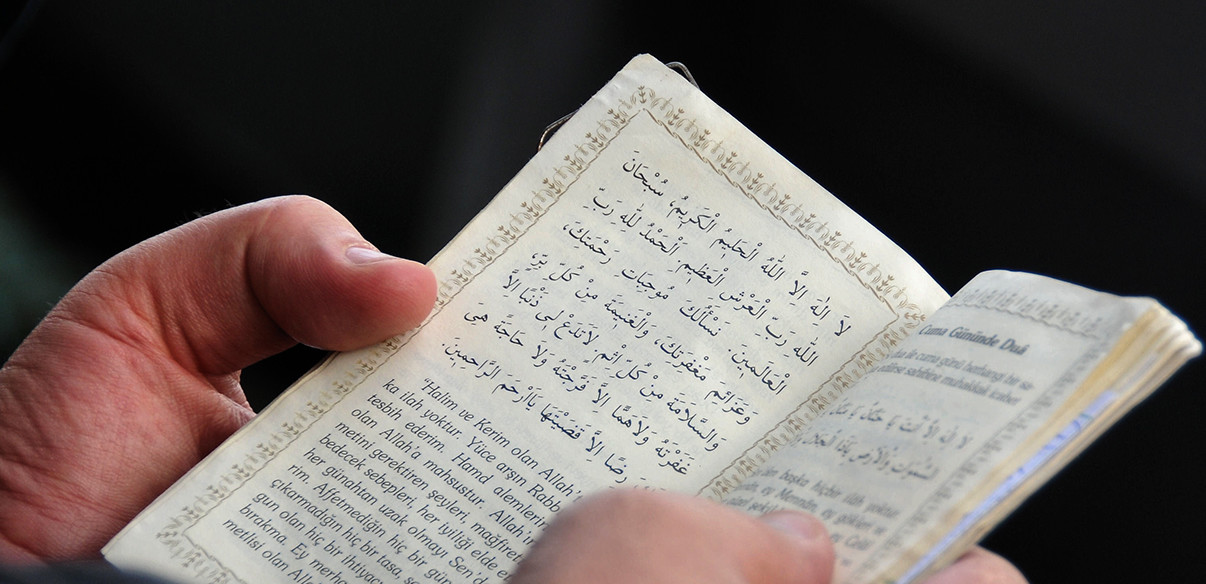 لَا اِلٰهَ اِلَّا اللّٰهُ الْحَلِيمُ الْكَرِيمُ، سُبْحَانَ
اللّٰهِ رَبِّ الْعَرْشِ الْعَظِيمِ. اَلْحَمْدُ لِلّٰهِ رَبِّ
الْعَالَمِينَ. نَسْأَلُكَ مُوجِبَاتِ رَحْمَتِكَ،
وَعَزَائِمَ مَغْفِرَتِكَ، وَالْغَنِيمَةَ مِنْ كُلِّ بِرٍّ،
وَالسَّلَامَةَ مِنْ كُلِّ اِثْمٍ. لَاتَدَعْ لِى ذَنْبًا اِلَّا
غَفَرْتَهُ وَلَاهَمًّا اِلَّا فَرَّجْتَهُ وَلَا حَاجَةً هِىَ
رِضًا اِلَّا قَضَيْتَهَا يَااَرْحَمَ الرَّاحِمِينَ.
"Halim ve Kerim olan Allah'
ka ilah yoktur. Yüce arşın Rabb
tesbih ederim. Hamd alemlerin
olan Allah'a mahsustur. Allah'ım
metini gerektiren şeyleri, mağfiret
bedecek sebepleri, her iyiliği elde e
her günahtan uzak olmayı Sen'd
rim. Affetmediğin hiç bir gün
çıkarmadığın hiç bir tasa, se
gun olan hiç bir ihtiyac
bırakma. Ey merha
metlisi olan Alla
Cuma Gününde Duâ
da ile cuma günü herhangi bir se-
edilirse sahibine muhakkak icabet
لَا اِلٰهَ اِلَّا اَنْتَ يَا حَنَّانُ يَا
السَّمٰوَاتِ وَالْاَرْضِ يَاذَا الْجَلَالِ
başka hiçbir ilâh yoktur.
ey Mennân, ey gökleri ve
ey Celâl